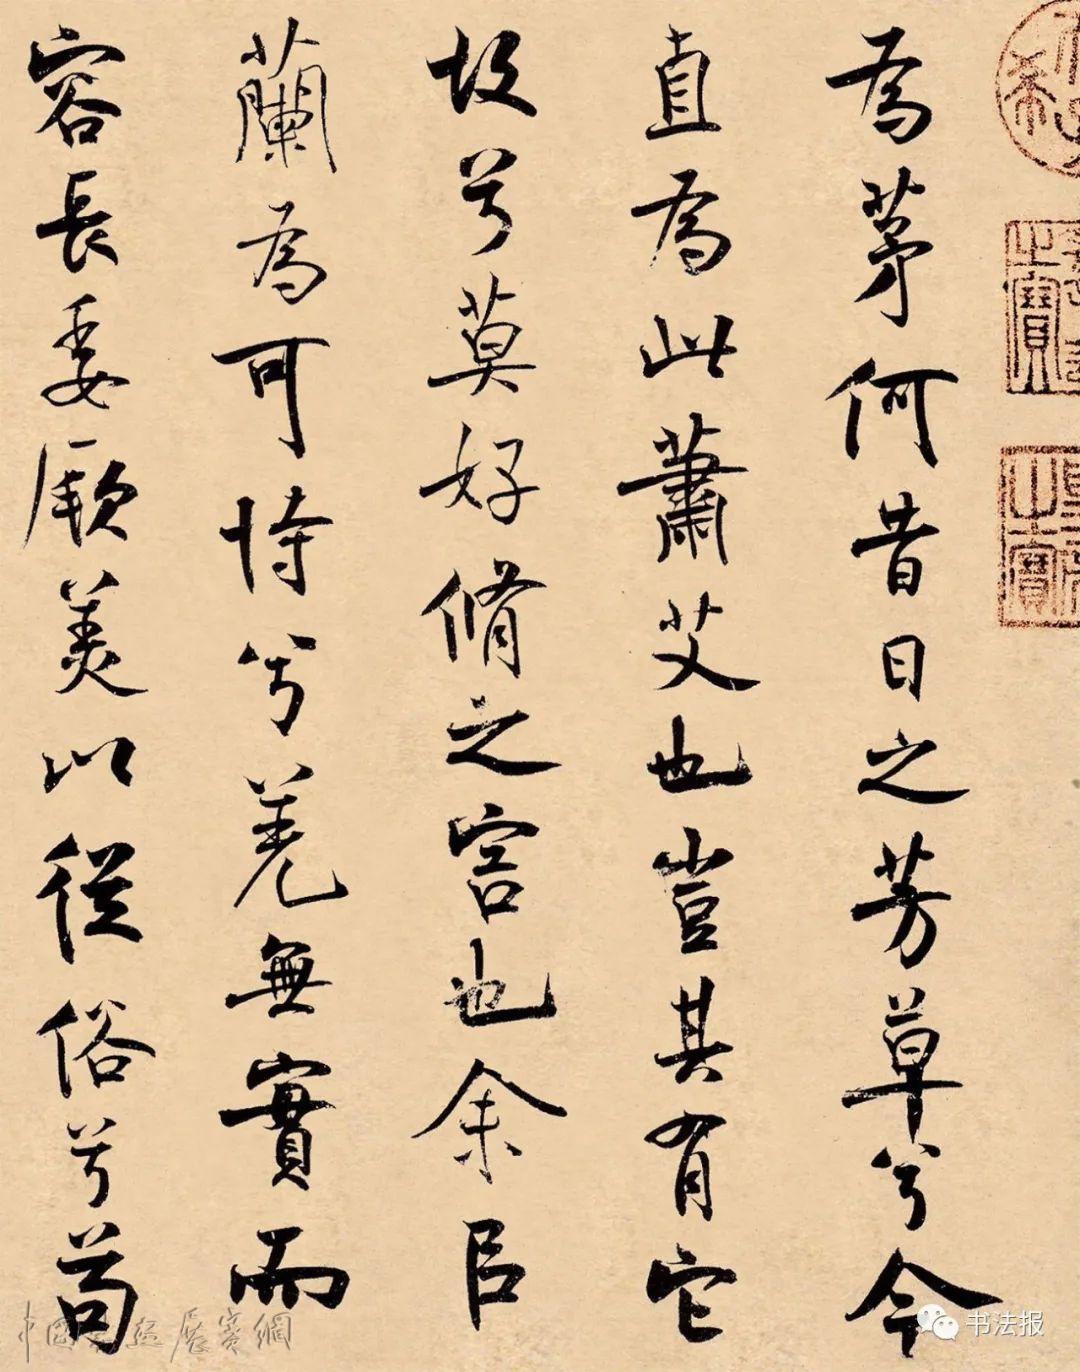 為茅何昔日之芳草兮今
直為此蕭艾也豈其有它
故兮莫好脩之害也余㠯
蘭為可恃兮羌無實而
容長委厥美以從俗兮苟
希
之寶
之寶
书法报